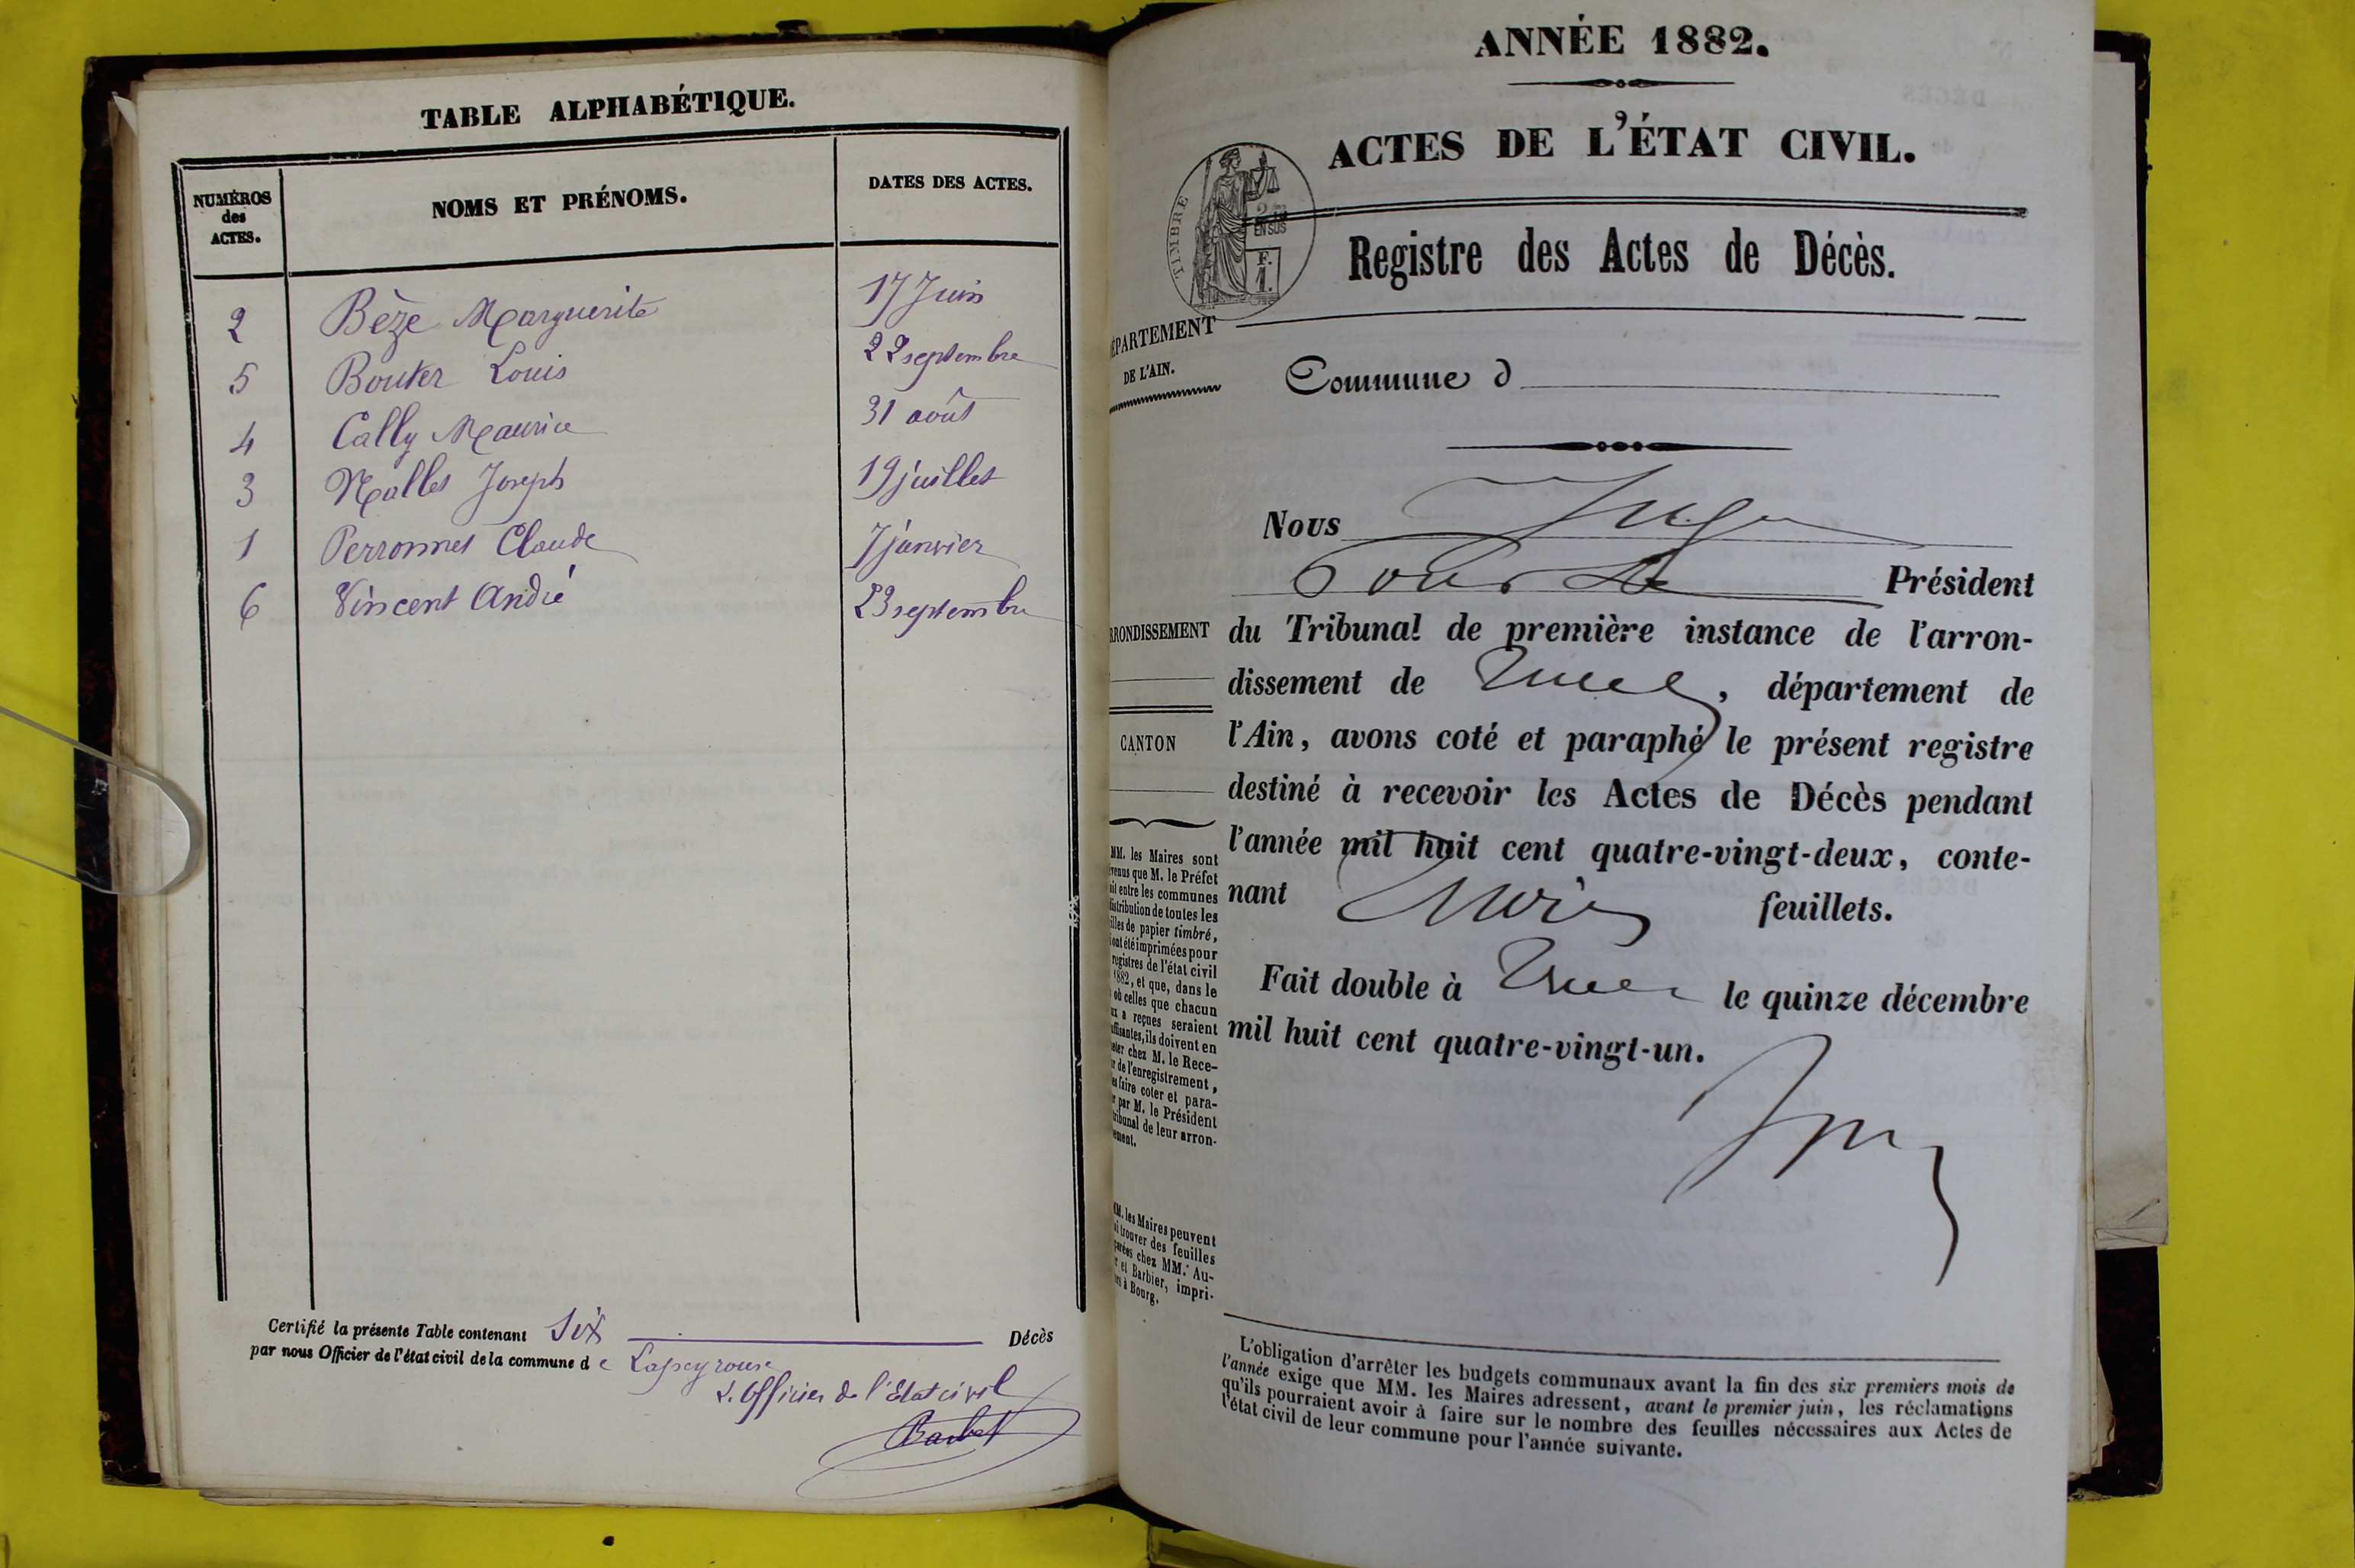 TABLE ALPHABÉTIQUE.
NUMÉROS
des
ACTES.
NOMS ET PRÉNOMS.
DATES DES ACTES.
2 Bèze Marguerite 17 Juin
5 Bouter Louis 22 septembre
4 Cally Maurice 31 août
3 Joseph 19 juillet
1 Perronnet Claude 7 janvier
6 Vincent André 23 septembre
Certifié la présente Table contenant Six Décès
par nous Officier de l'état civil de la commune de Lapeyrouse
L. Officier de l'Etat civil
Barbet
ANNÉE 1882.
ACTES DE L'ÉTAT CIVIL.
TIMBRE
EN SUS
F.
1.
Registre des Actes de Décès.
ÉPARTEMENT
DE L'AIN.
Commune d
Nous Juge
Pour le Président
RRONDISSEMENT
du Tribunal de première instance de l'arron-
dissement de , département de
CANTON
l'Ain, avons coté et paraphé le présent registre
destiné à recevoir les Actes de Décès pendant
l'année mil huit cent quatre-vingt-deux, conte-
nant feuillets.
Fait double à le quinze décembre
mil huit cent quatre-vingt-un.
MM. les Maires sont
venus que M. le Préfet
ait entre les communes
istribution de toutes les
illes de papier timbré,
i ont été imprimées pour
registres de l'état civil
1882, et que, dans le
où celles que chacun
ux a reçues seraient
uffisantes, ils doivent en
eter chez M. le Rece-
r de l'enregistrement,
es faire coter et para-
r par M. le Président
tribunal de leur arron-
ement.
MM. les Maires peuvent
i trouver des feuilles
parées chez MM. Au-
r et Barbier, impri-
rs à Bourg.
L'obligation d'arrêter les budgets communaux avant la fin des six premiers mois de
l'année exige que MM. les Maires adressent, avant le premier juin, les réclamations
qu'ils pourraient avoir à faire sur le nombre des feuilles nécessaires aux Actes de
l'état civil de leur commune pour l'année suivante.